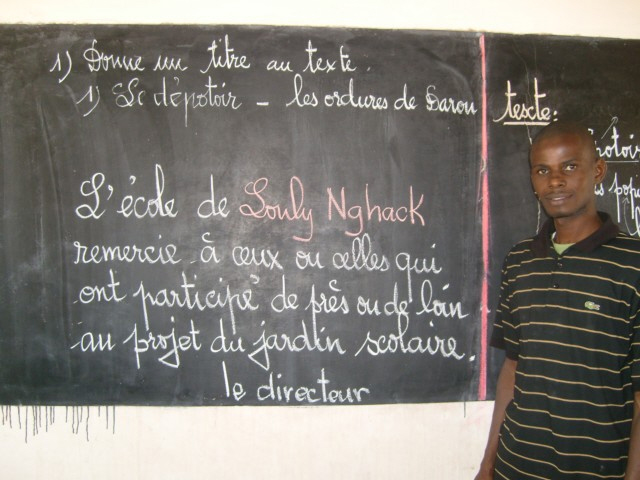 1) Donne un titre au texte.
1) Le dépotoir - les ordures de Barou
L'école de Louly Nghack
remercie à ceux ou celles qui
ont participé de près ou de loin
au projet du jardin scolaire.
le directeur
texte: